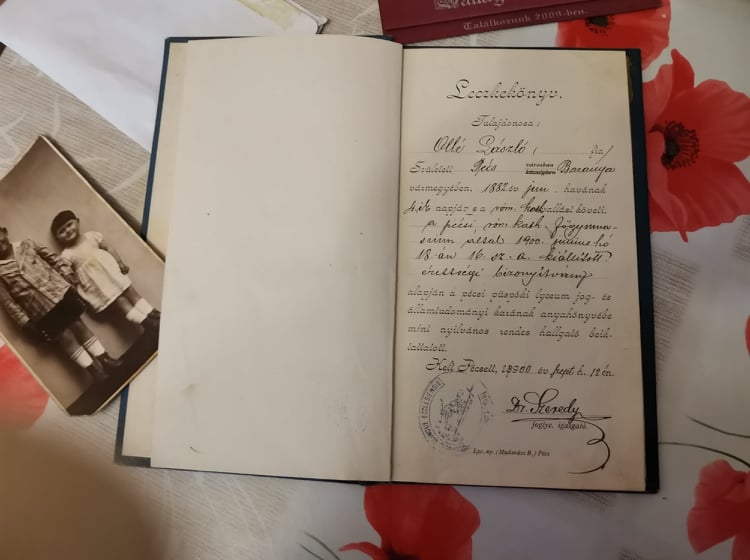 Találkozunk 2009-ben.
Leczkekönyv.
Tulajdonosa:
Ollé László ( fia)
Született Pécs városban községben Baranya
vármegyében, 1882 év jun. havának
napján s a róm. kath vallást követi.
a pécsi róm. kath. főgymna-
sium által 1900. junius hó
18-án 16. sz. a. kiállított
érettségi bizonyítvány
alapján a pécsi püspöki lyceum jog- és
államtudományi karának anyakönyvébe
mint nyilvános rendes hallgató beik-
tattatott.
Kelt Pécsett, 1900 év szept h. 12 én.
Dr. Szeredy
joglyc. igazgató.
Lyc. ny. (Madarász B.) Pécs